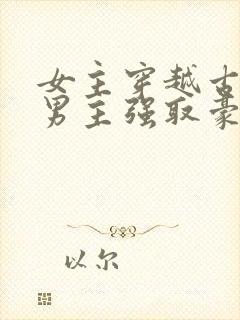 女主穿越古
男主强取豪
以尔